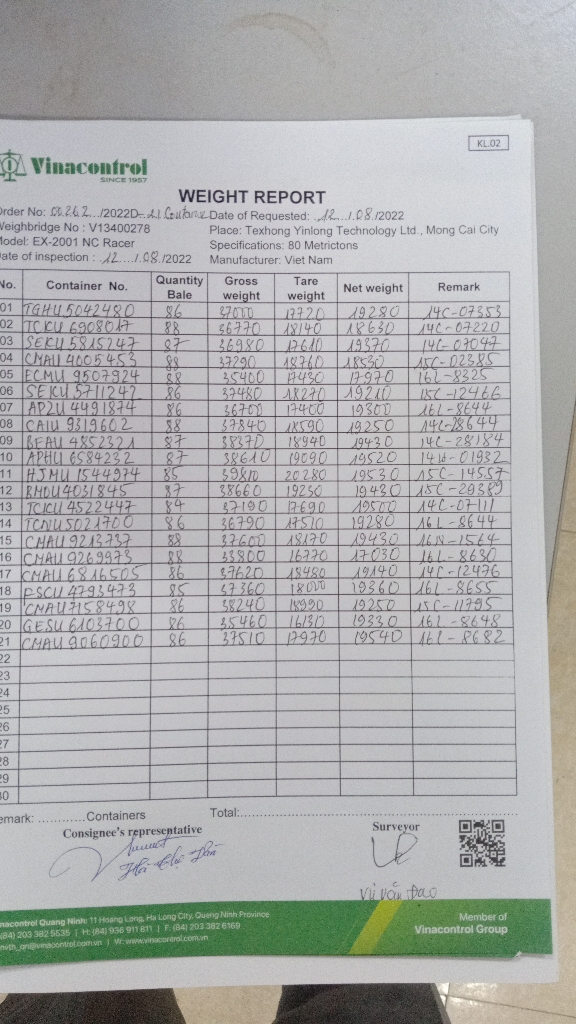 KL.02
Vinacontrol
SINCE 1957
WEIGHT REPORT
Order No: 00262.../2022D-21 Date of Requested: .12.../.08./2022
Weighbridge No : V13400278 Place: Texhong Yinlong Technology Ltd., Mong Cai City
Model: EX-2001 NC Racer Specifications: 80 Metrictons
Date of inspection : .12..../.08./2022 Manufacturer: Viet Nam
No. Container No. Quantity Bale Gross weight Tare weight Net weight Remark
01 TGHU 5042480 86 37000 17720 19280 14C-07353
02 TCKU 6908017 88 36770 18140 18630 14C-07220
03 SEKU 5815247 87 36980 17610 19370 14C-07047
04 CMAU 4005453 88 37290 18760 18530 15C-02385
05 ECMU 9507924 88 35400 17430 17970 16L-8325
06 SEKU 5711242 86 37480 18270 19210 15C-12466
07 APZU 4491874 86 36700 17400 19300 16L-8644
08 CAIU 9319602 88 37840 18590 19250 14C-28644
09 BEAU 4852321 87 38370 18940 19430 14C-28184
10 APHU 6584232 87 38610 19090 19520 14Ld-01932
11 HJMU 1544974 85 39810 20280 19530 15C-14557
12 BMOU 4031845 87 38660 19230 19430 15C-29389
13 TCKU 4522447 84 37190 17690 19500 14C-07111
14 TCNU 5021700 86 36790 17510 19280 16L-8644
15 CMAU 9213737 88 37600 18170 19430 16N-1564
16 CMAU 9269973 88 33800 16770 17030 16L-8630
17 CMAU 6816505 86 37620 18480 19140 14C-12476
18 FSCU 4793473 85 37360 18000 19360 16L-8655
19 CMAU 7158498 86 38240 18990 19250 15C-11795
20 GESU 6103700 86 35460 16130 19330 16L-8648
21 CMAU 9060900 86 37510 17970 19540 16L-8682
22
23
24
25
26
27
28
29
30
Remark: ............Containers Total:......................
Consignee's representative Surveyor
Vũ Văn Đạo
Vinacontrol Quang Ninh: 11 Hoang Long, Ha Long City, Quang Ninh Province
(84) 203 382 5535 | H: (84) 936 911 811 | F: (84) 203 382 6169
W: www.vinacontrol.com.vn
Member of
Vinacontrol Group